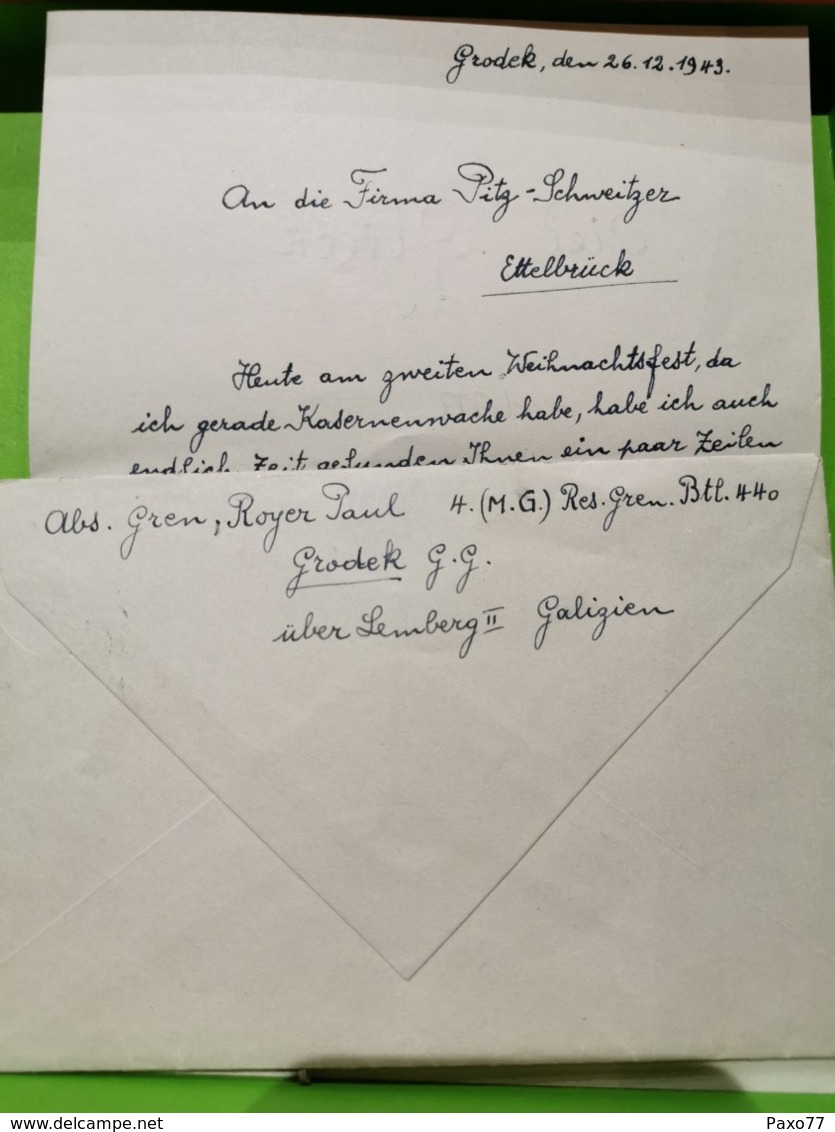 Grodek, den 26.12.1943.
An die Firma Pitz-Schweitzer
Ettelbrück
Heute am zweiten Weihnachtsfest, da
ich gerade Kasernenwache habe, habe ich auch
endlich Zeit gefunden Ihnen ein paar Zeilen
Abs. Gren, Royer Paul 4. (M.G.) Res. Gren. Btl. 440
Grodek G.G.
über Lemberg II Galizien
www.delcampe.net
Paxo77